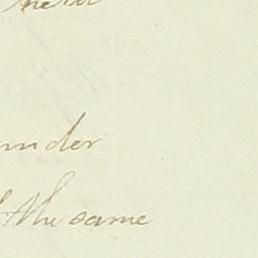 under
the same